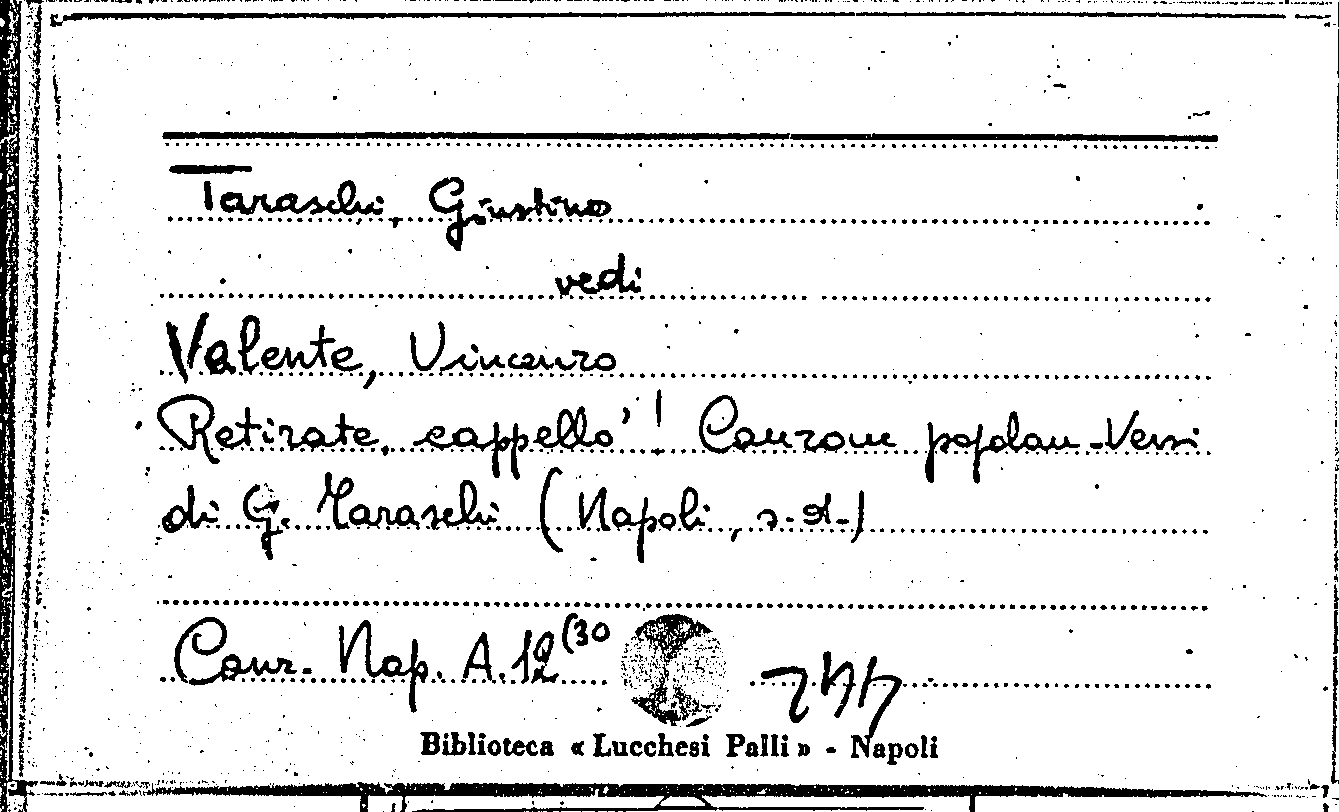 Taraschi, Giustino
vedi
Valente, Vincenzo
Retirate, cappello'! Canzone popolare - Versi
di G. Taraschi (Napoli, s.d.)
Canz. Nap. A.12(30
Biblioteca « Lucchesi Palli » - Napoli